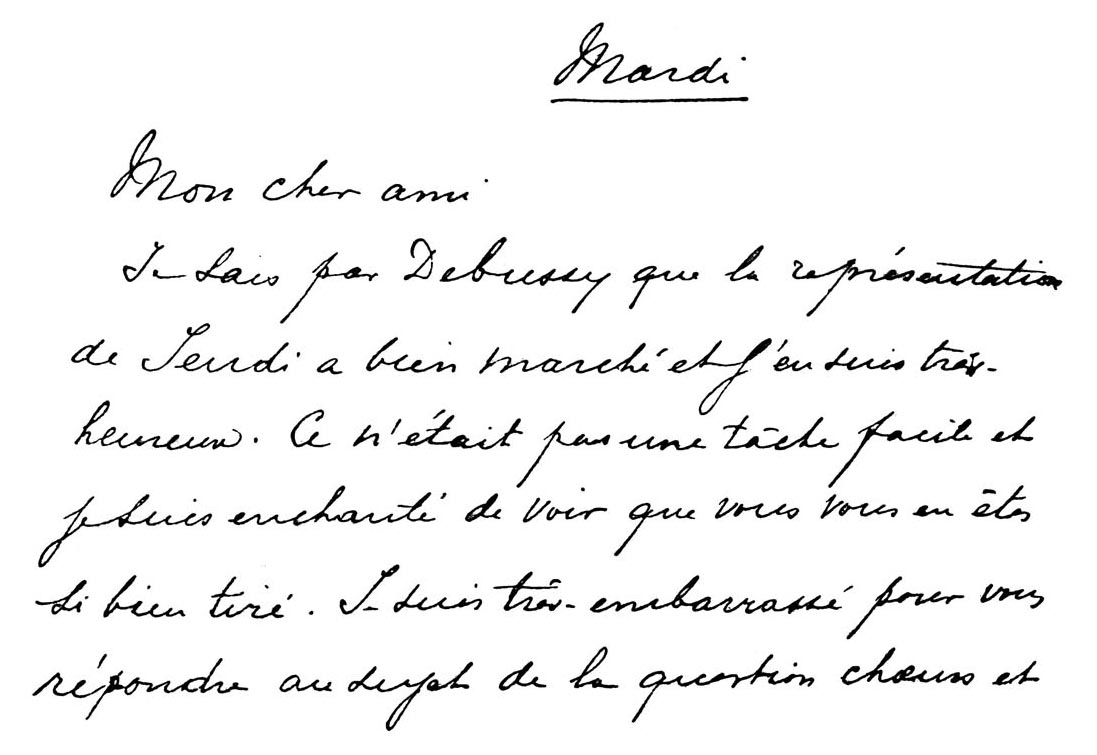 Mardi
Mon cher ami
Je sais par Debussy que la représentation
de Jeudi a bien marché et j'en suis très-
heureux. Ce n'était pas une tâche facile et
je suis enchanté de voir que vous vous en êtes
si bien tiré. Je suis très-embarrassé pour vous
répondre au sujet de la question chœurs et